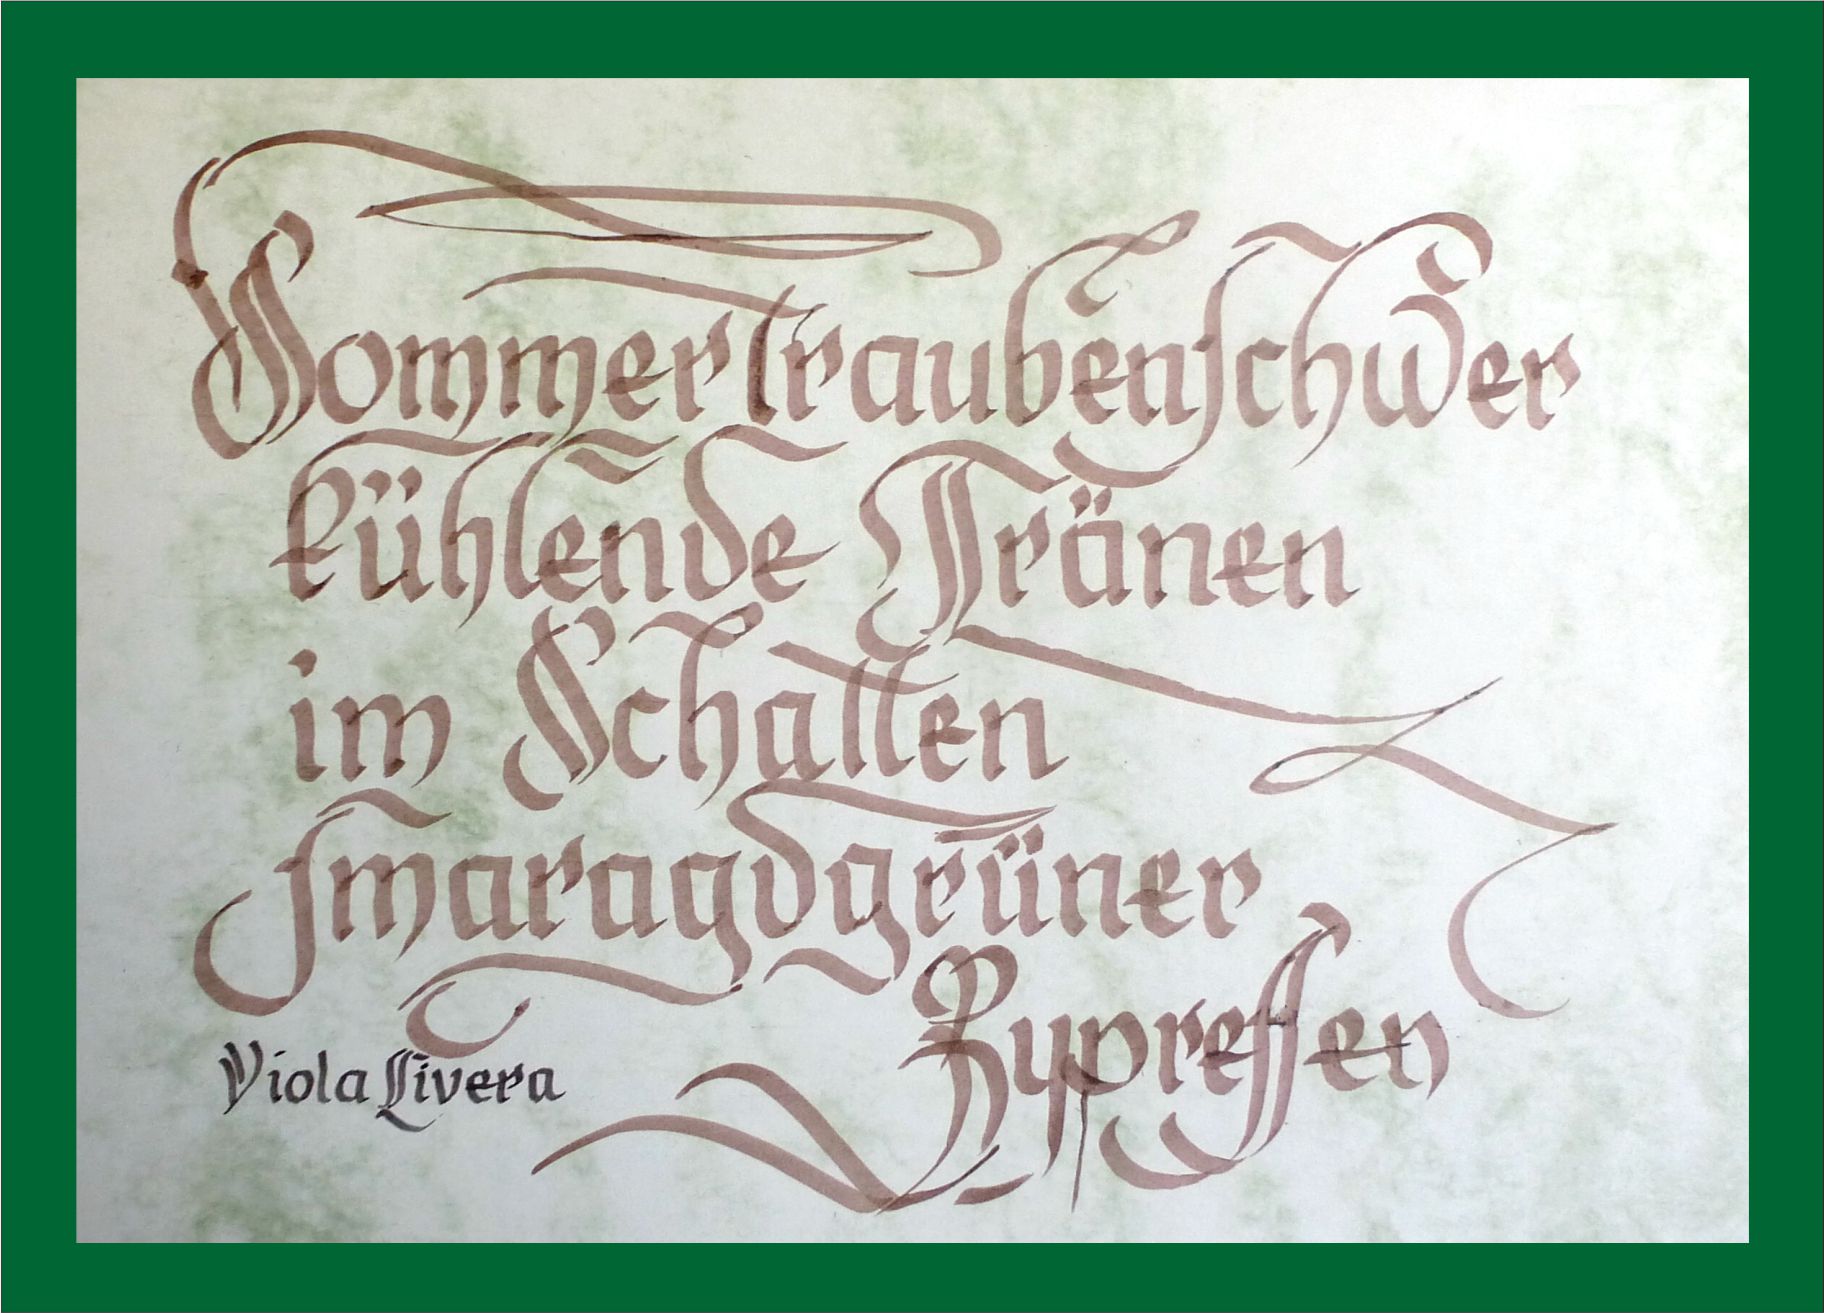 Sommertraubenschwer
kühlende Tränen
im Schatten
smaragdgrüner
Zypressen
Viola Livera